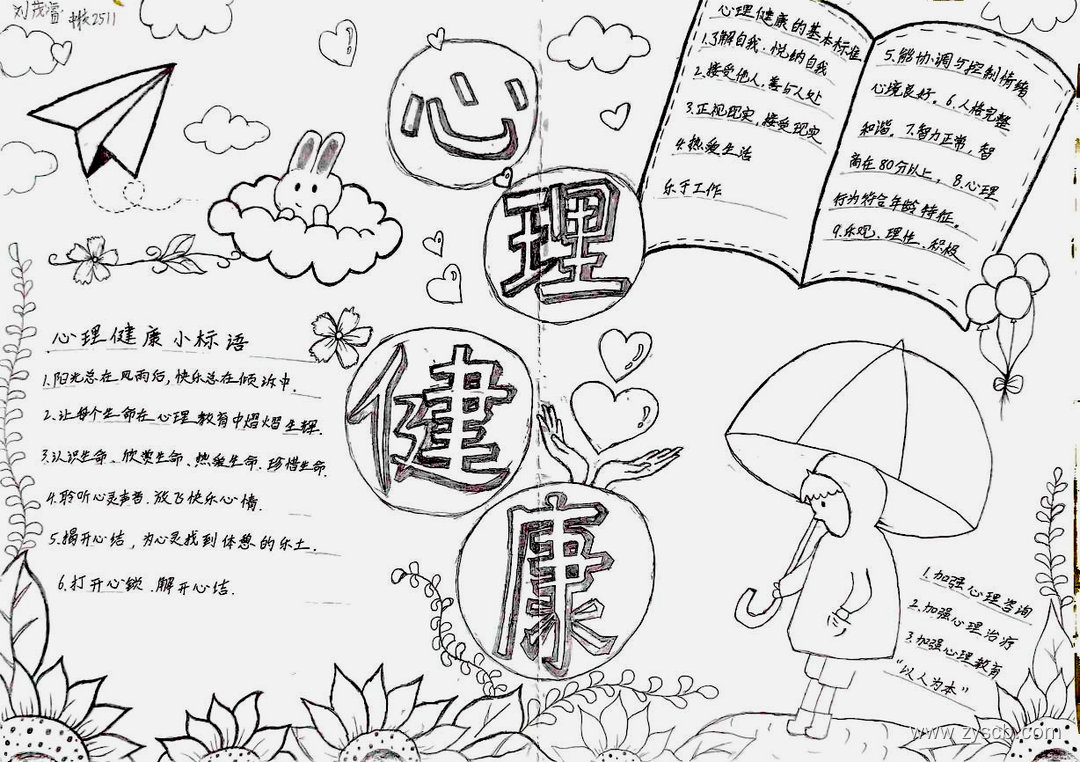 刘茂蕾 中核2511
心理健康
心理健康的基本标准
1.了解自我、悦纳自我
2.接受他人,善与人处
3.正视现实,接受现实
4.热爱生活
乐于工作
5.能协调与控制情绪
心境良好。6.人格完整
和谐。7.智力正常,智
商在80分以上。8.心理
行为符合年龄特征。
9.乐观、理性、积极
心理健康小标语
1.阳光总在风雨后,快乐总在倾诉中.
2.让每个生命在心理教育中熠熠生辉.
3.认识生命、欣赏生命、热爱生命、珍惜生命.
4.聆听心灵声音.放飞快乐心情.
5.揭开心结,为心灵找到休憩的乐土.
6.打开心锁.解开心结.
1.加强心理咨询
2.加强心理治疗
3.加强心理教育
"以人为本"
www.zyscb.com